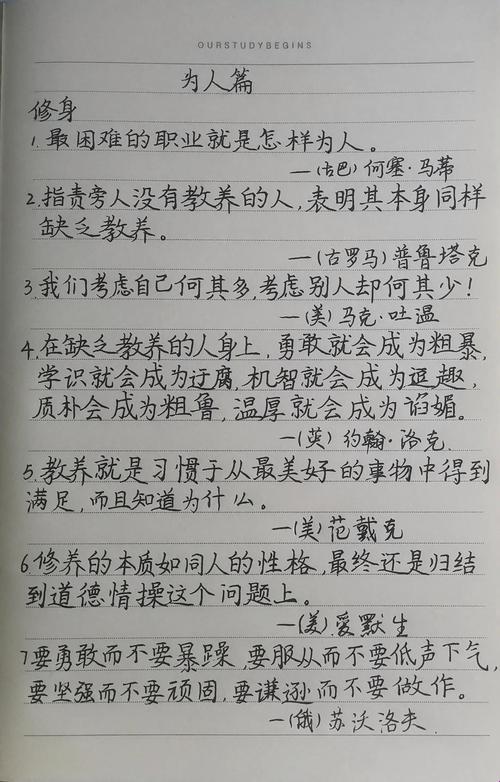 OURSTUDYBEGINS
为人篇
修身
1. 最困难的职业就是怎样为人。
—(古巴)何塞·马蒂
2.指责旁人没有教养的人,表明其本身同样
缺乏教养。
—(古罗马)普鲁塔克
3.我们考虑自己何其多,考虑别人却何其少!
—(美)马克·吐温
4,在缺乏教养的人身上,勇敢就会成为粗暴,
学识就会成为迂腐,机智就会成为逗趣,
质朴会成为粗鲁,温厚就会成为谄媚。
—(英)约翰·洛克.
5.教养就是习惯于从最美好的事物中得到
满足,而且知道为什么。
—(美)范戴克
6.修养的本质如同人的性格,最终还是归结
到道德情操这个问题上。
—(美)爱默生
7要勇敢而不要暴躁,要服从而不要低声下气,
要坚强而不要顽固,要谦逊而不要做作。
—(俄)苏沃洛夫